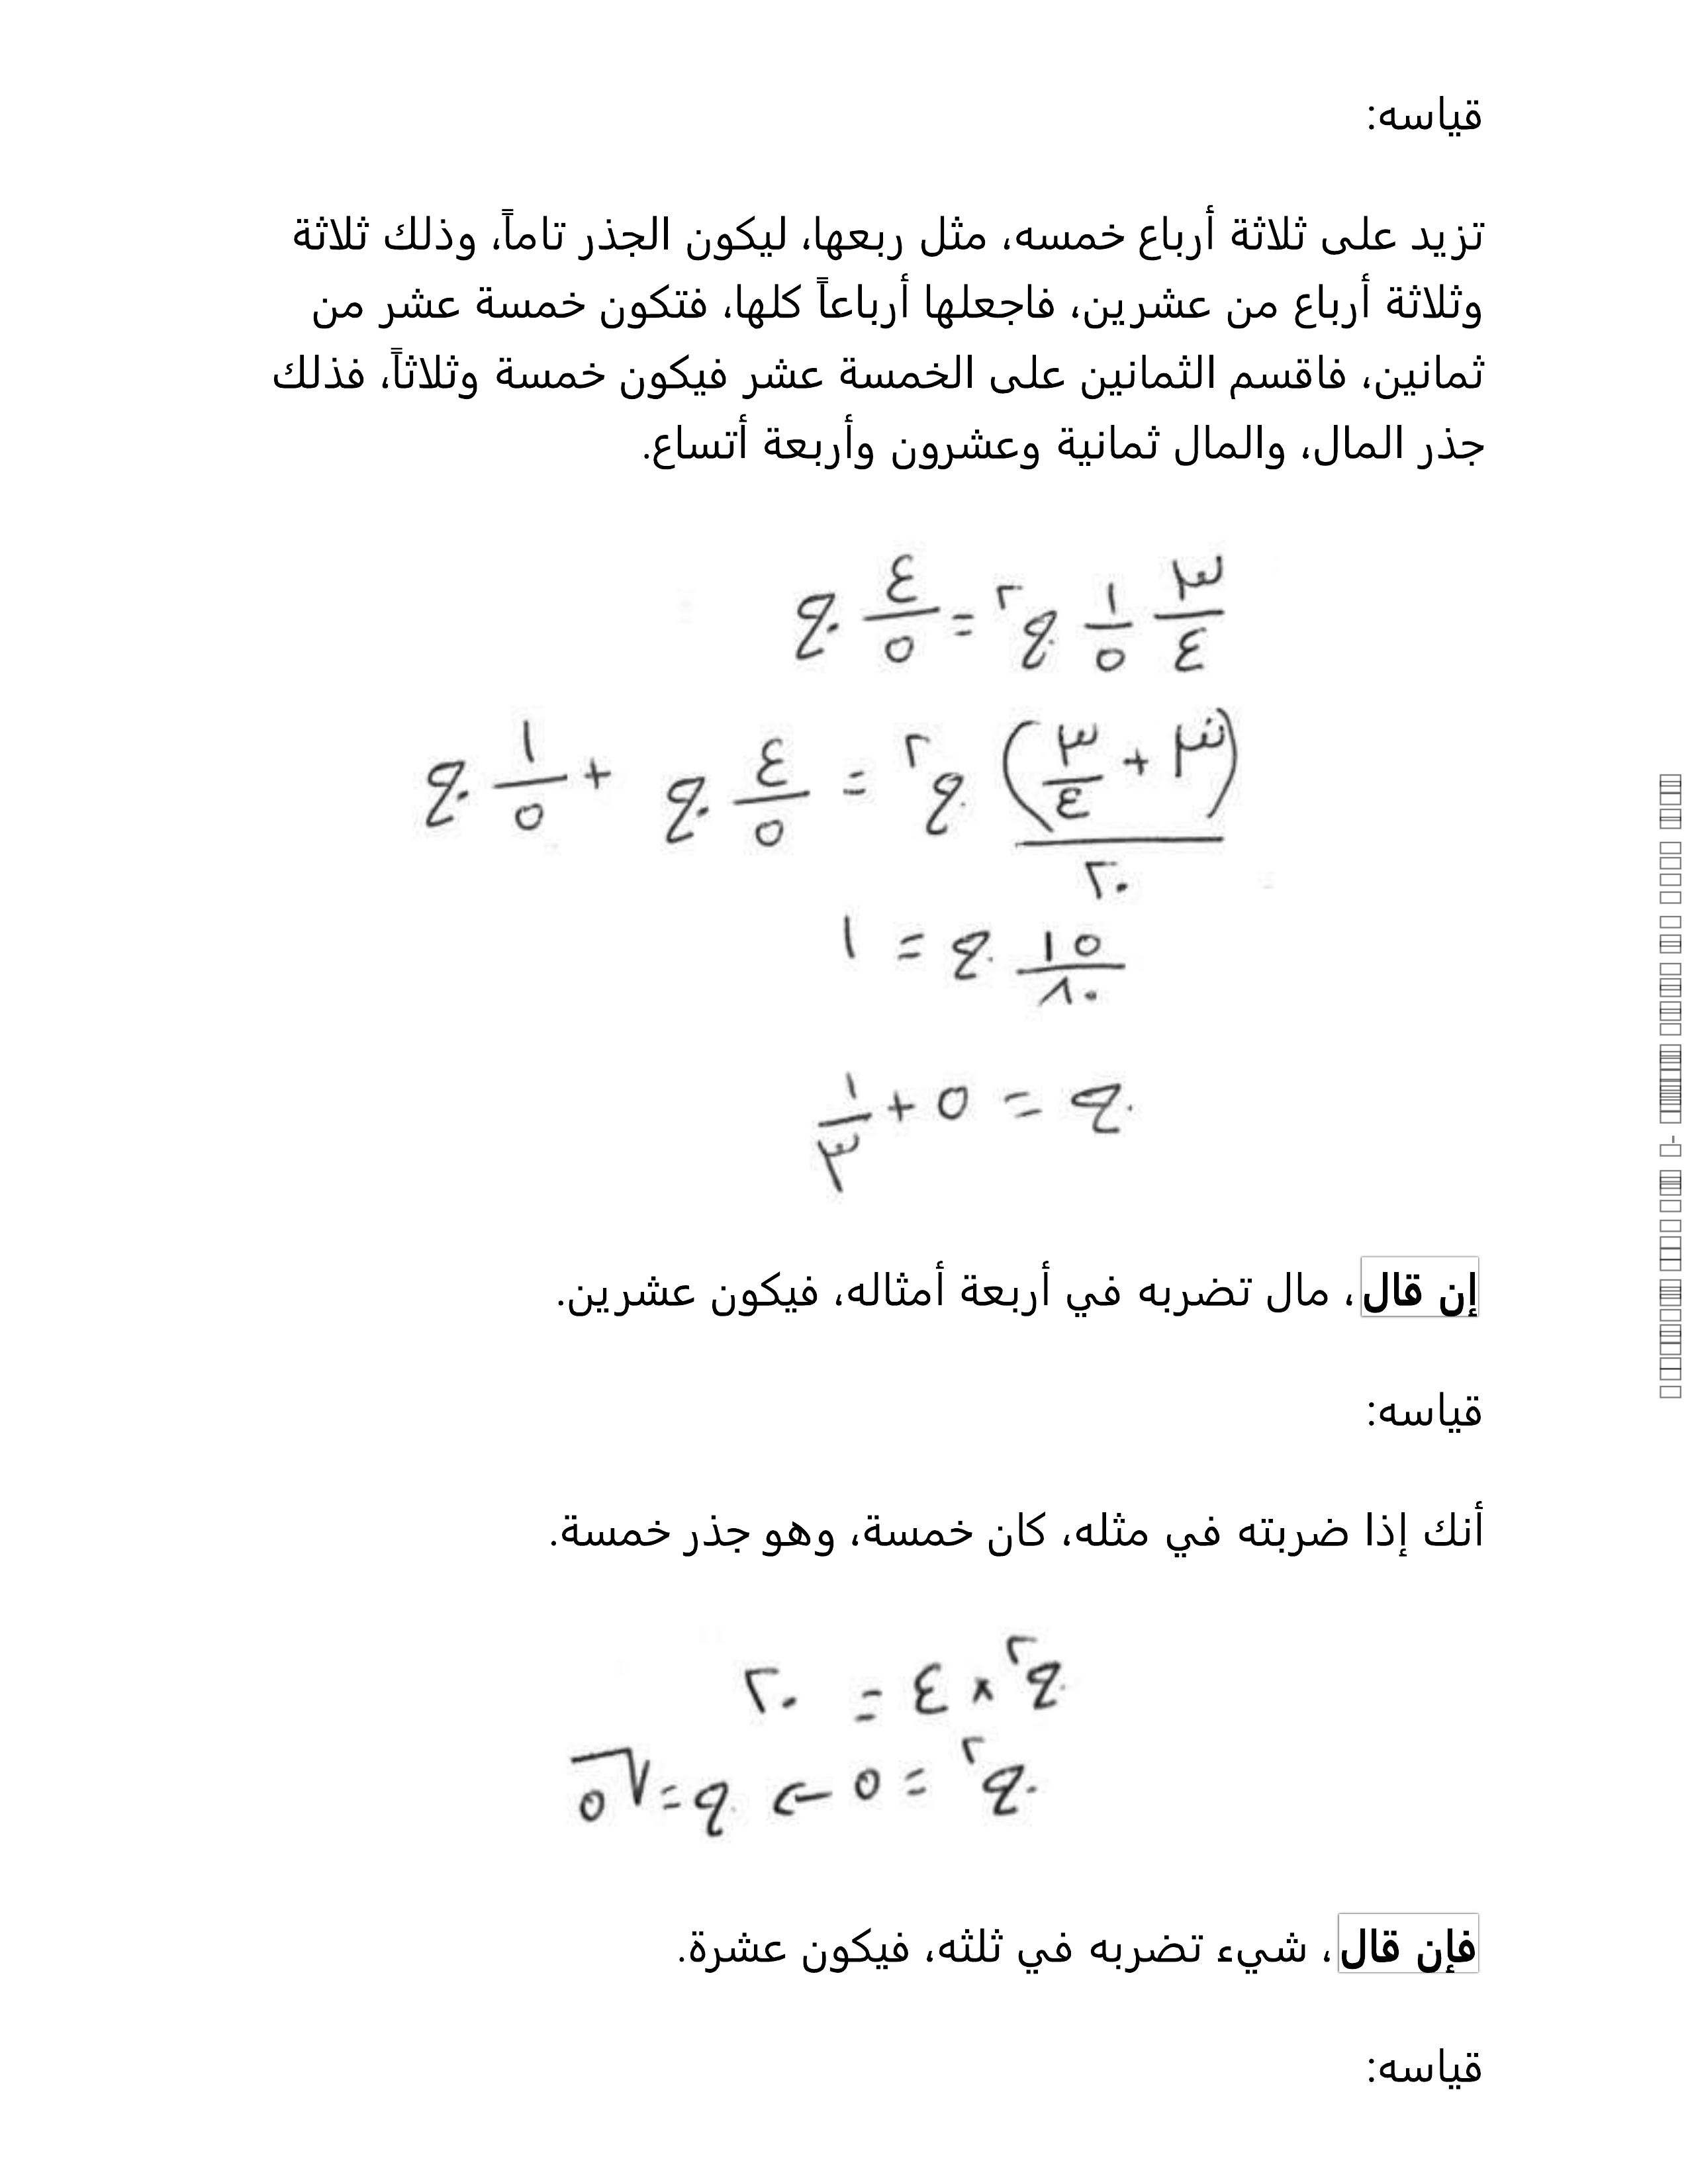 قياسه:
تزيد على ثلاثة أرباع خمسه، مثل ربعها، ليكون الجذر تاماً، وذلك ثلاثة
وثلاثة أرباع من عشرين، فاجعلها أرباعاً كلها، فتكون خمسة عشر من
ثمانين، فاقسم الثمانين على الخمسة عشر فيكون خمسة وثلاثاً، فذلك
جذر المال، والمال ثمانية وعشرون وأربعة أتساع.
٣/٤ ١/٥ ج٢ = ٤/٥ ج
(٣ + ٣/٤)/٢٠ ج٢ = ٤/٥ ج + ١/٥ ج
١٥/٨٠ ج = ١
ج = ٥ + ١/٣
إن قال، مال تضربه في أربعة أمثاله، فيكون عشرين.
قياسه:
أنك إذا ضربته في مثله، كان خمسة، وهو جذر خمسة.
ج٢ × ٤ = ٢٠
ج٢ = ٥ ← ج = √٥
فإن قال، شيء تضربه في ثلثه، فيكون عشرة.
قياسه: